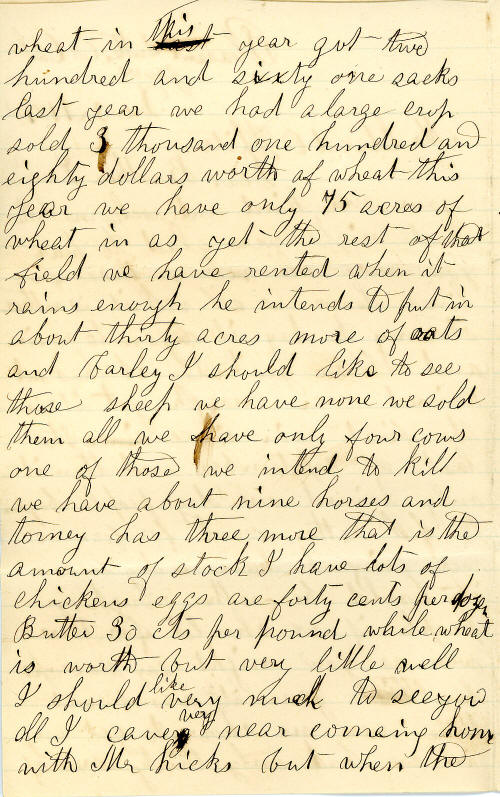 wheat in this year got two
hundred and sixty one sacks
last year we had a large crop
sold 3 thousand one hundred and
eighty dollars worth of wheat this
year we have only 75 acres of
wheat in as yet the rest of that
field we have rented when it
rains enough he intends to put in
about thirty acres more of oats
and barley I should like to see
those sheep we have none we sold
them all we have only four cows
one of those we intend to kill
we have about nine horses and
torney has three more that is the
amount of stock I have lots of
chickens eggs are forty cents per dozen
Butter 30 cts per pound while wheat
is worth but very little well
I should like very much to see you
all I came very near comeing home
with Mr hicks but when the